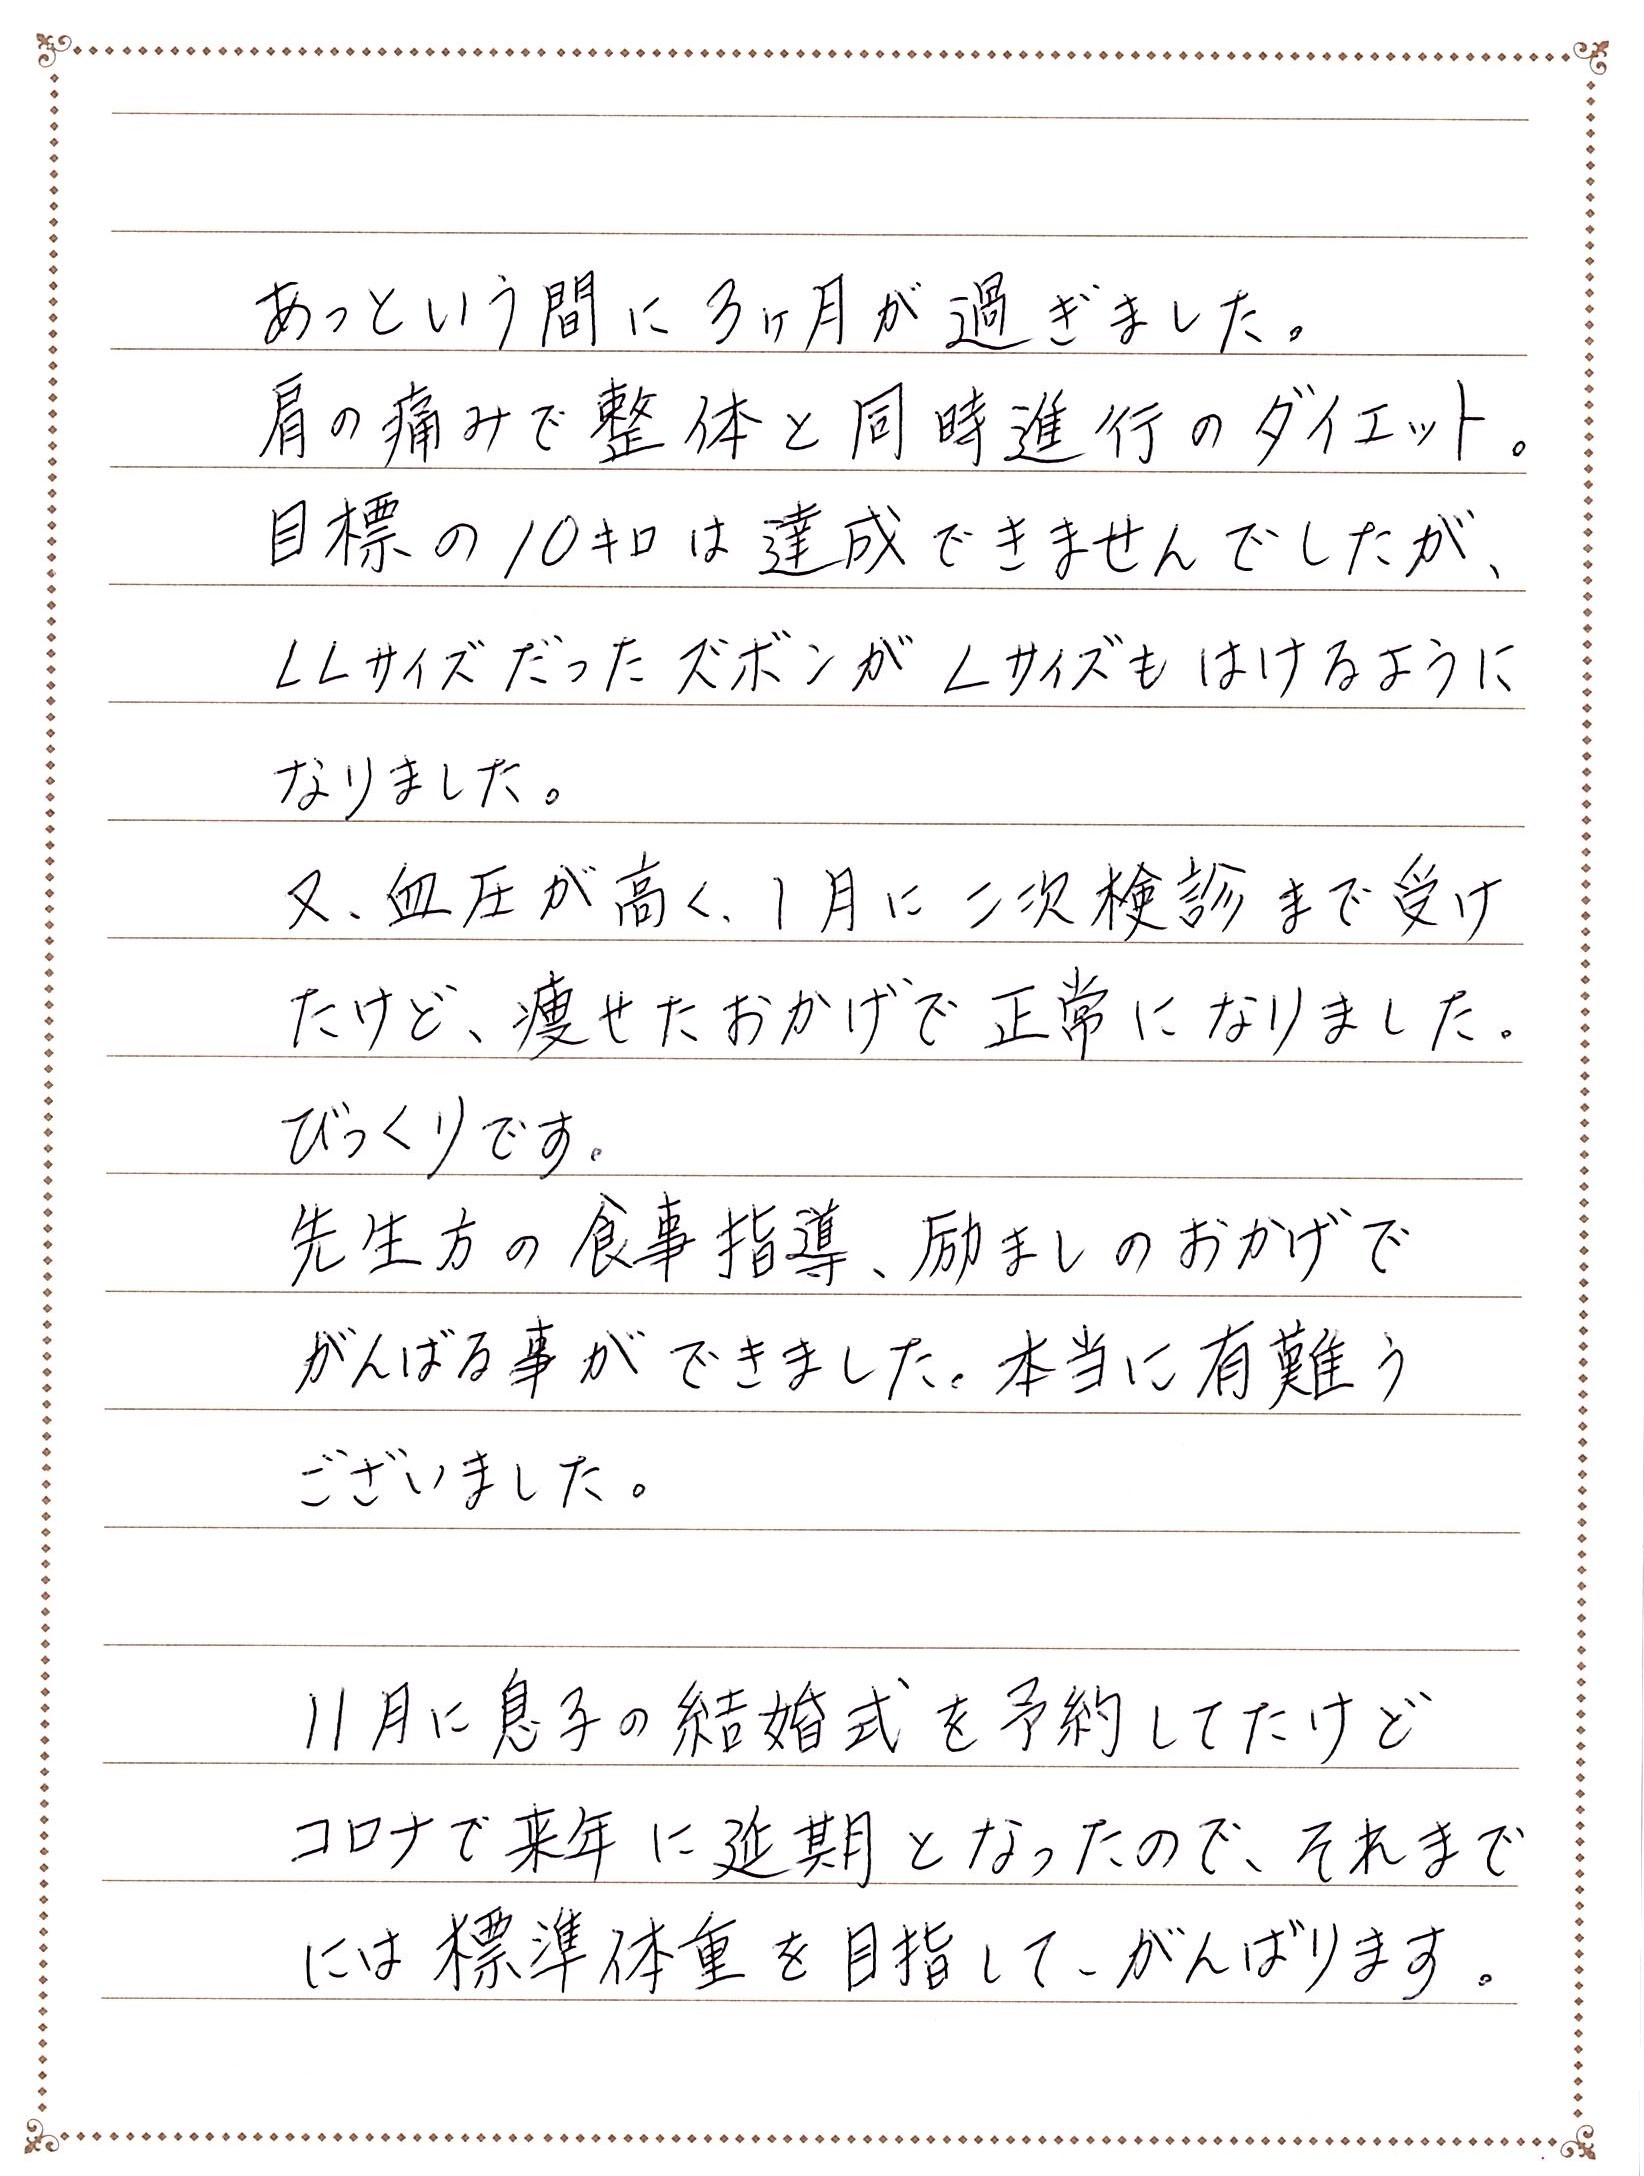 あっという間に3ヶ月が過ぎました。
肩の痛みで整体と同時進行のダイエット。
目標の10キロは達成できませんでしたが、
LLサイズだったズボンがLサイズもはけるように
なりました。
又、血圧が高く、1月に二次検診まで受け
たけど、痩せたおかげで正常になりました。
びっくりです。
先生方の食事指導、励ましのおかげで
がんばる事ができました。本当に有難う
ございました。
11月に息子の結婚式を予約してたけど
コロナで来年に延期となったので、それまで
には標準体重を目指して、がんばります。